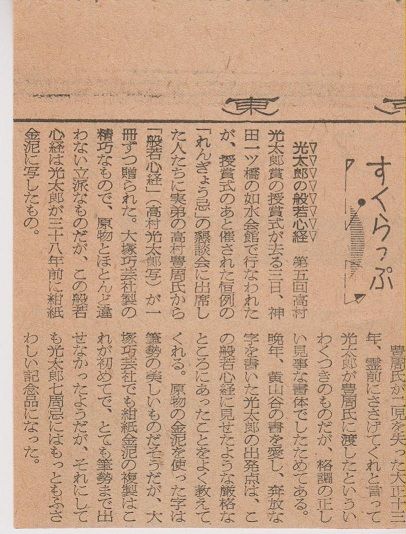 東京
すくらっぷ
▽▽▽▽▽▽▽▽▽▽
光太郎の般若心経 第五回高村
光太郎賞の授賞式が去る三日、神
田一ツ橋の如水会館で行なわれた
が、授賞式のあと催された恒例の
「れんぎょう忌」の懇談会に出席し
た人たちに実弟の高村豊周氏から
「般若心経」(高村光太郎写)が一
冊ずつ贈られた。大塚巧芸社製の
精巧なもので、原物とほとんど違
わない立派なものだが、この般若
心経は光太郎が三十八年前に紺紙
金泥に写したもの。
豊周氏が一児を失った大正十三
年、霊前にささげてくれと言って
光太郎が豊周氏に渡したといい
わくつきのものだが、格調の正し
い見事な書体でしたためてある。
晩年、黄山谷の書を愛し、奔放な
字を書いた光太郎の出発点は、こ
の般若心経に見せたような厳格な
ところにあったことをよく教えて
くれる。原物の金泥を使った字は
筆勢の美しいものだそうだが、大
塚巧芸社でも紺紙金泥の複製はこ
れが初めてで、とても筆勢まで出
せなかったようだが、それにして
も光太郎七周忌にはもっともふさ
わしい記念品になった。